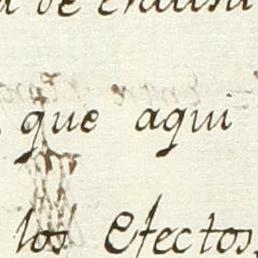 de
que aqui
los efectos,